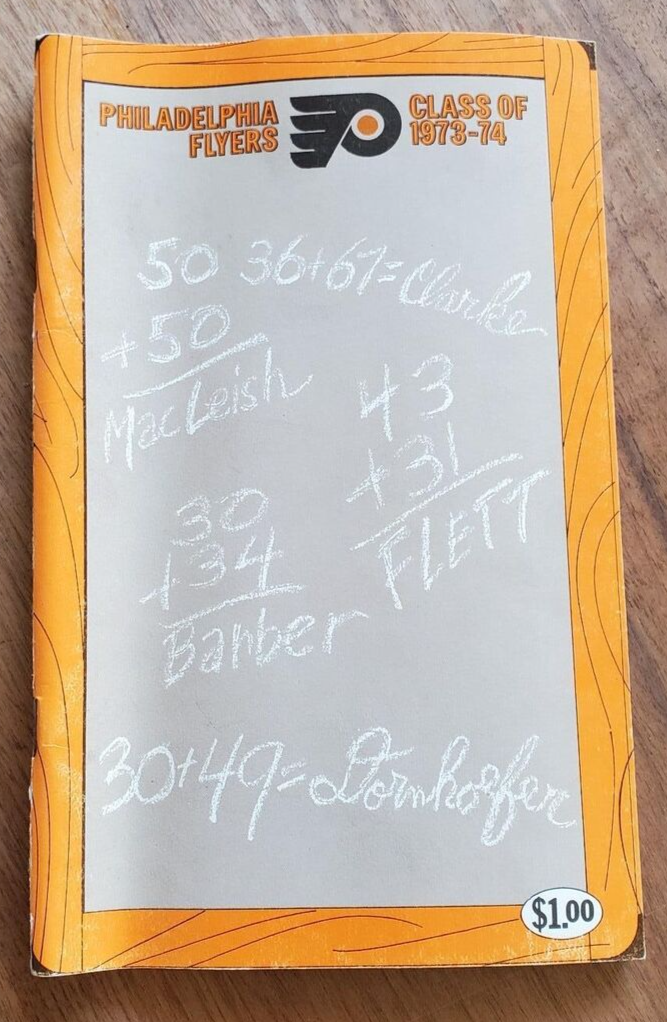 PHILADELPHIA
FLYERS
CLASS OF
1973-74
50
+50
MacLeish
36+67=Clarke
43
+31
FLETT
30
+34
Barber
30+49=Dornhoefer
$1.00